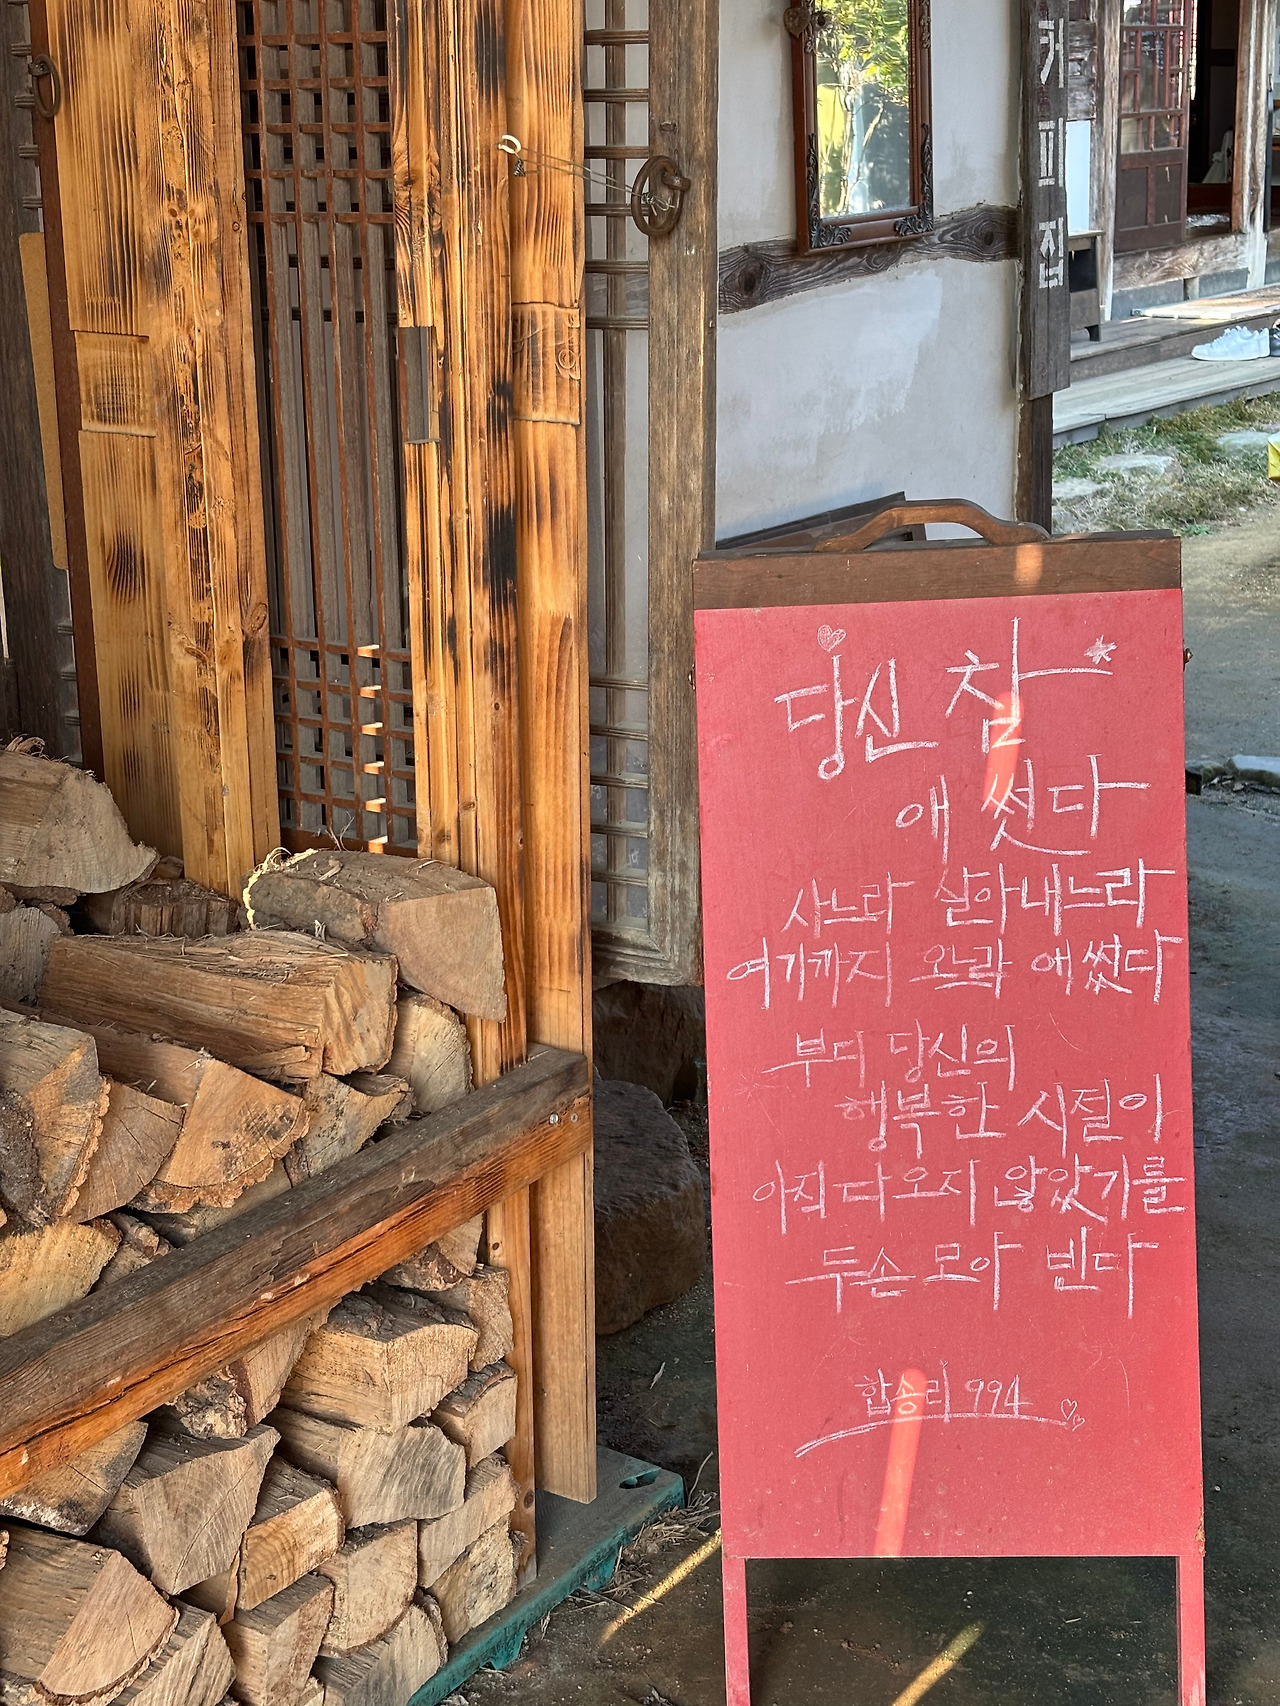 커피집
당신 참
애 썻다
사느라 살아내느라
여기까지 오느라 애썼다
부디 당신의
행복한 시절이
아직 다 오지 않았기를
두손 모아 빈다
합송리 994